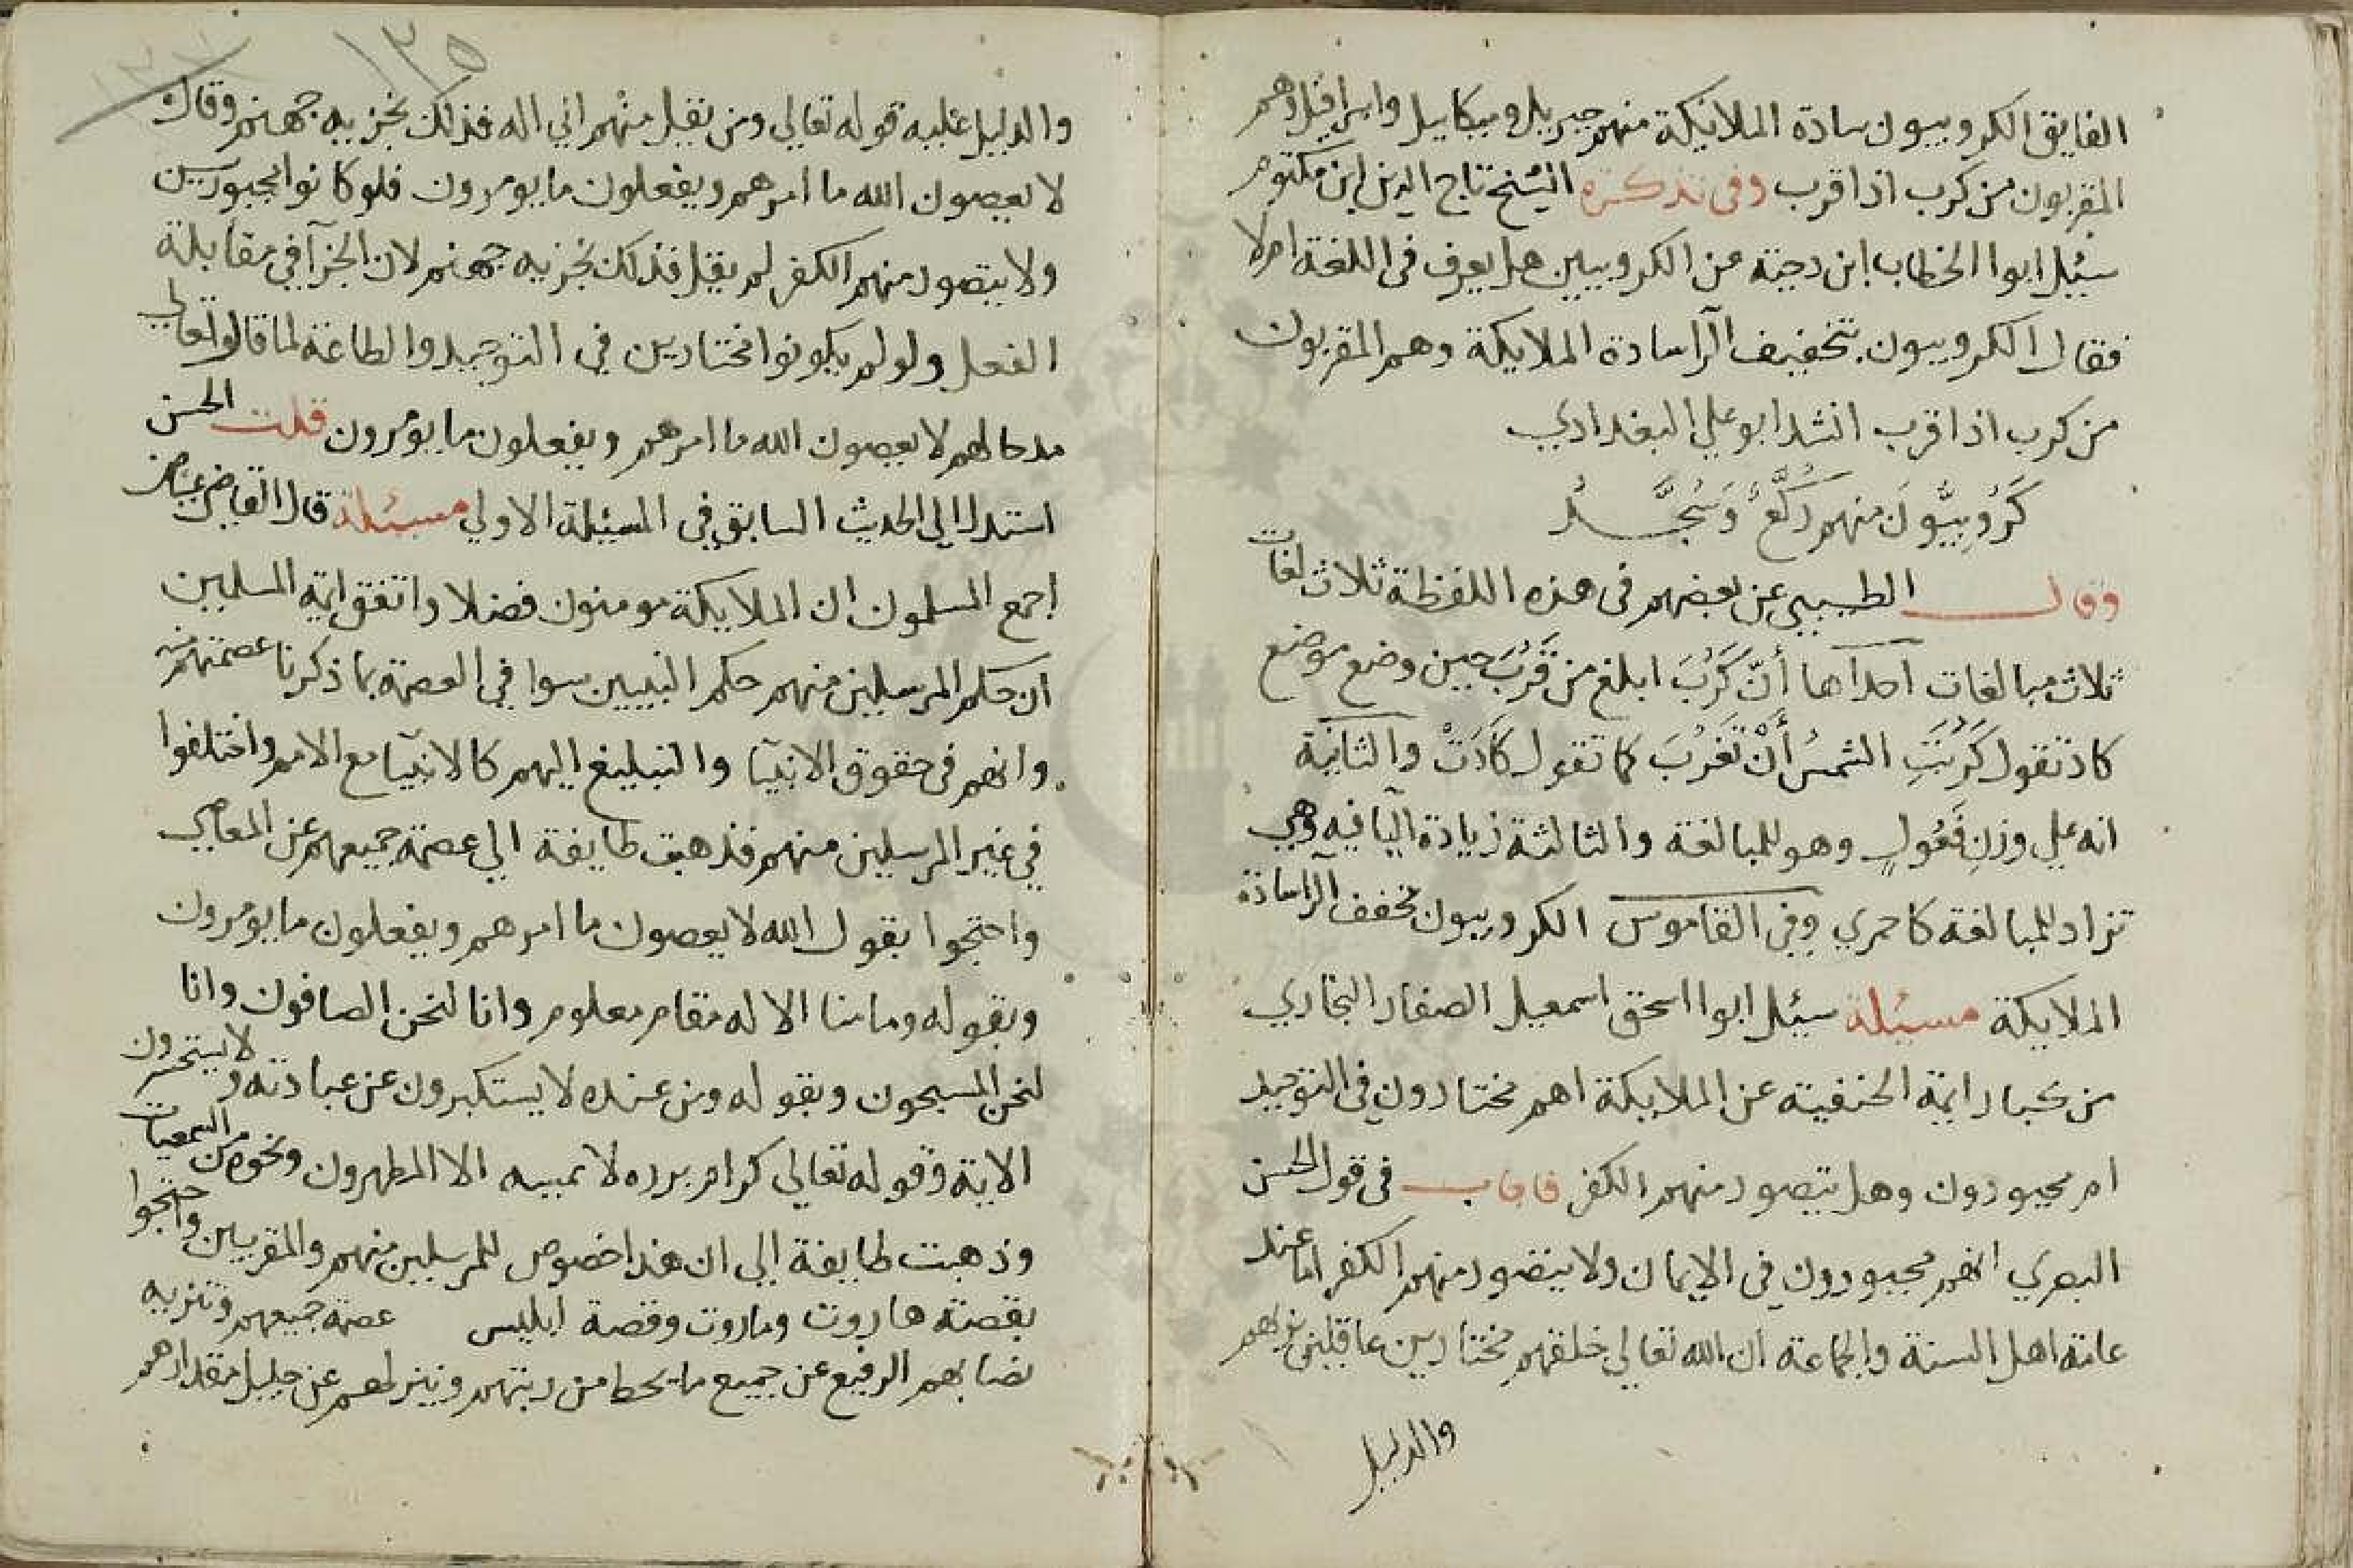 الفايق الكروبيون سادة الملائكة منهم جبريل وميكاييل واسرافيل وهم
المقربون من كرب اذا قرب وفى تذكرة الشيخ تاج الدين ابن مكتوم
سئيل ابوا الخطاب ابن دحية عن الكروبيين هل يعرف فى اللغة ام لا
فقال الكروبيون بتخفيف الرا سادة الملايكة وهم المقربون
من كرب اذا قرب انشد ابو علي البغدادي
كَرُوبِيُّونَ منهم رُكَّعٌ وَسُجَّدُ
وقال الطيبي عن بعضهم فى هذه اللفظة ثلاث لغات
ثلاث مبالغات احداها أنّ كَرُبَ ابلغ من قَرُبَ حين وضع موضع
كاد تقول كَرُبَتِ الشمسُ أَنْ تَغْرُبَ كما تقول كَادَتْ والثانية
انه علي وزنِ فَعُولٍ وهو للمبالغة والثالثة زيادة اليا فيه وهي
تزاد للمبالغة كاحمري وفى القاموس الكروبيون مخفف الرا سادة
الملايكة مسئلة سيئل ابوا اسحق اسمعيل الصفار البخاري
من كبار ايمة الحنفية عن الملايكة اهم مختارون فى التوحيد
ام مجبورون وهل يتصور منهم الكفر فاجاب فى قول الحسن
البصري انهم مجبورون في الايمان ولا يتصور منهم الكفر اما عند
عامة اهل السنة والجماعة ان الله تعالي خلقهم مختارين عاقلين
والدليل
١٣٥
والدليل عليه قوله تعالي ومن يقل منهم اني اله فذلك نجزيه جهنم وقال
لا يعصون الله ما امرهم ويفعلون ما يومرون فلو كانوا مجبورين
ولا يتصور منهم الكفر لم يقل فذلك نجزيه جهنم لان الجزآ في مقابلة
الفعل ولو لم يكونوا مختارين في التوحيد والطاعة لما قال تعالي
مدحا لهم لا يعصون الله ما امرهم ويفعلون ما يؤمرون قلت الحسن
استدل الي الحديث السابق في المسئلة الاولي مسئلة قال القاضي عياض
اجمع المسلمون ان الملايكة مومنون فضلا واتفق ايمة المسلمين
ان حكم المرسلين منهم حكم النبيين سوا في العصمة بما ذكرنا عصمتهم منه
وانهم فى حقوق الانبيا والتبليغ اليهم كالانبيا مع الامم واختلفوا
في غير المرسلين منهم فذهبت طايفة الي عصمة جميعهم عن المعاصي
واحتجوا بقول الله لا يعصون ما امرهم ويفعلون ما يؤمرون
وبقوله وما منا الا له مقام معلوم وانا لنحن الصافون وانا
لنحن المسبحون وبقوله ومن عنده لا يستكبرون عن عبادته ولا يستحسرون
الاية وقوله تعالي كرام برره لا يمسه الا المطهرون ونحوه من السمعيات
وذهبت طايفة الي ان هذا خصوص للمرسلين منهم والمقربين واحتجوا
بقصة هاروت وماروت وقصة ابليس عصمة جميعهم وتنزيه
نصابهم الرفيع عن جميع ما يحط من رتبتهم وينزلهم عن جليل مقدارهم